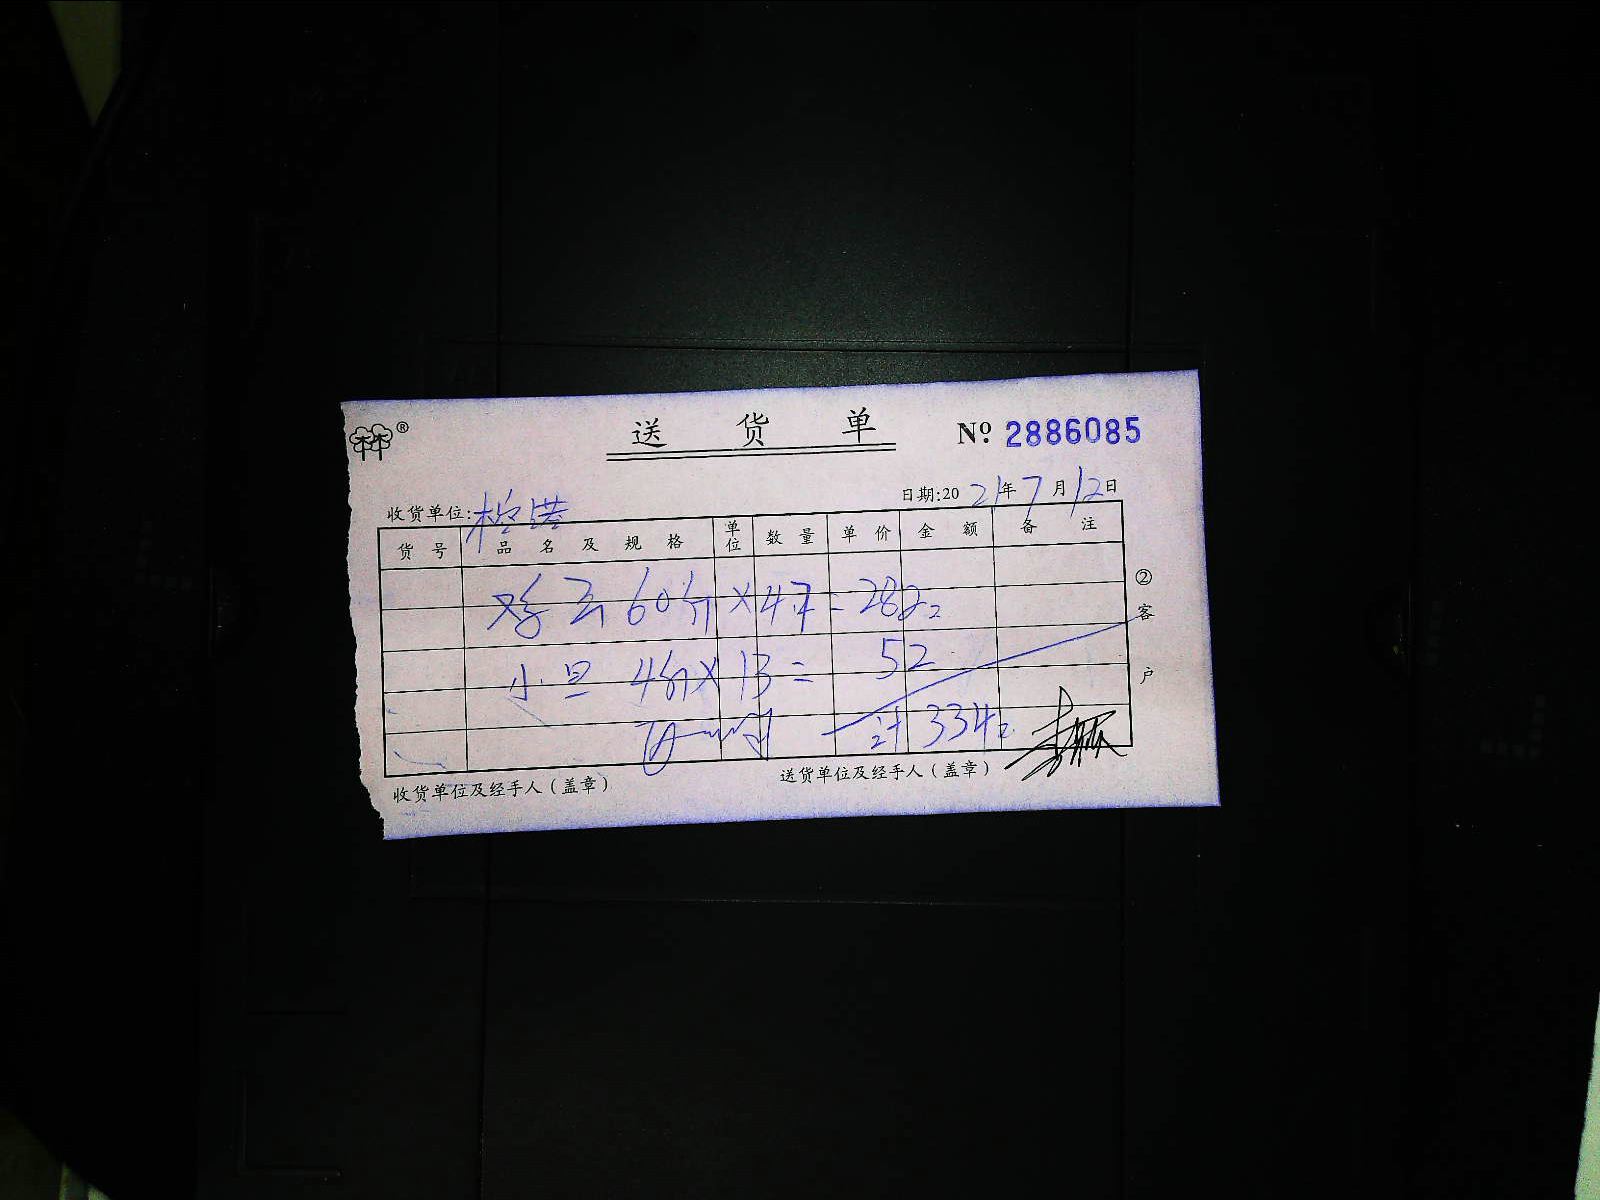 林®
送货单
№ 2886085
收货单位:
日期:2021年7月12日
货号 品名及规格 单位 数量 单价 金额 备注
鸡云 60斤×4.7=282元
小旦 4斤×13=52
计334元
②客户
收货单位及经手人(盖章)
送货单位及经手人(盖章)